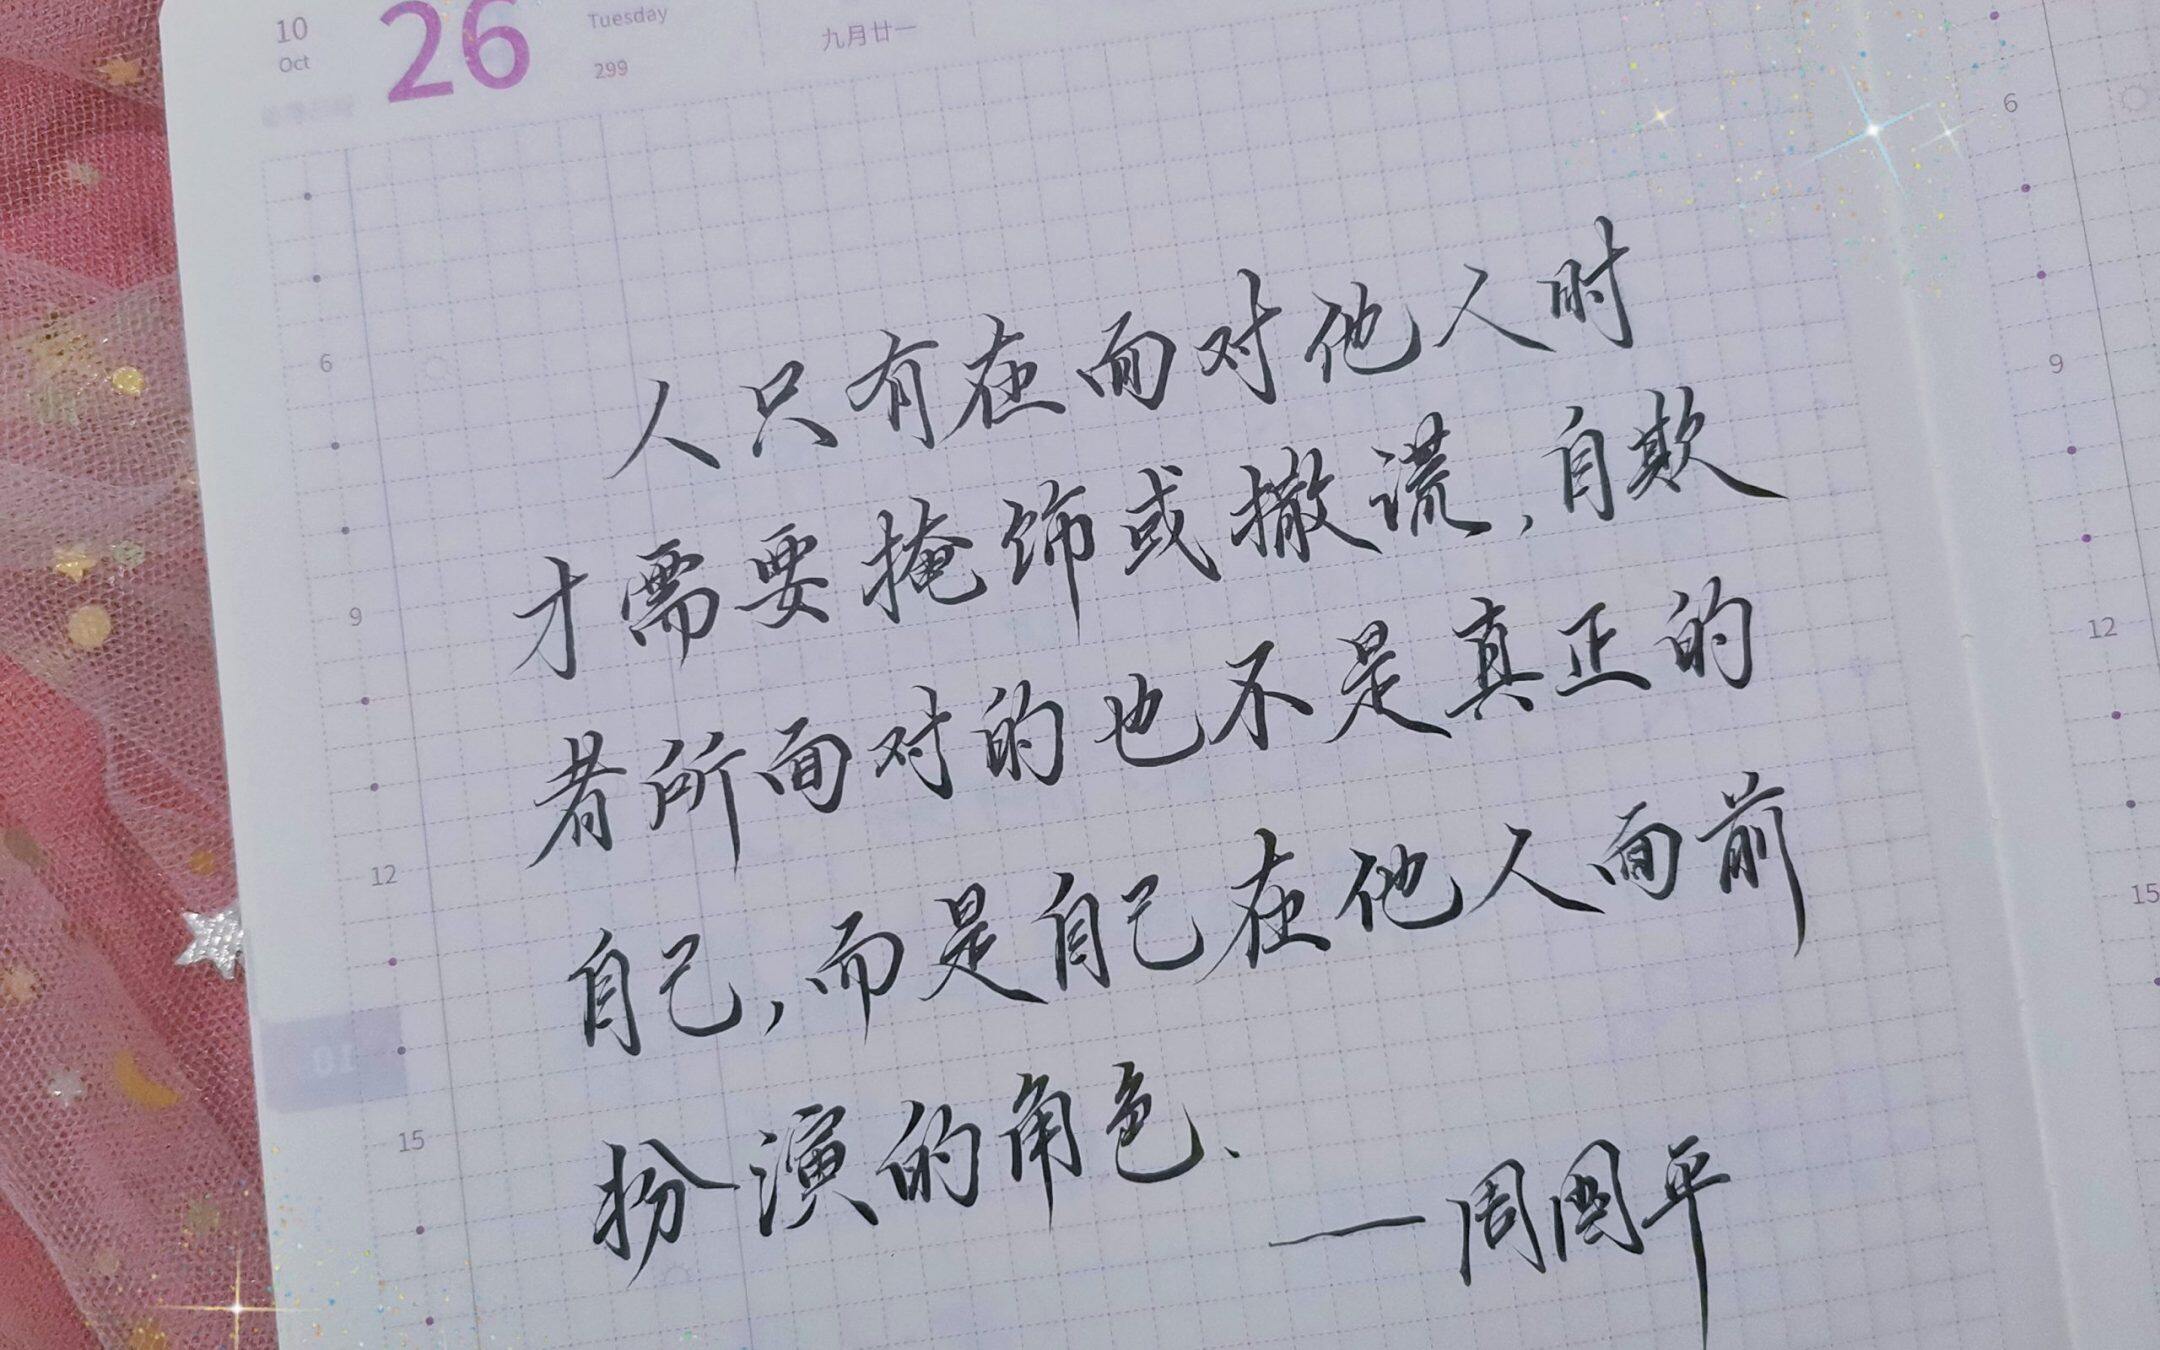 10
Oct
26
Tuesday
299
九月廿一
人只有在面对他人时
才需要掩饰或撒谎,自欺
者所面对的也不是真正的
自己,而是自己在他人面前
扮演的角色.
——周国平
6
9
12
15
10
6
9
12
15